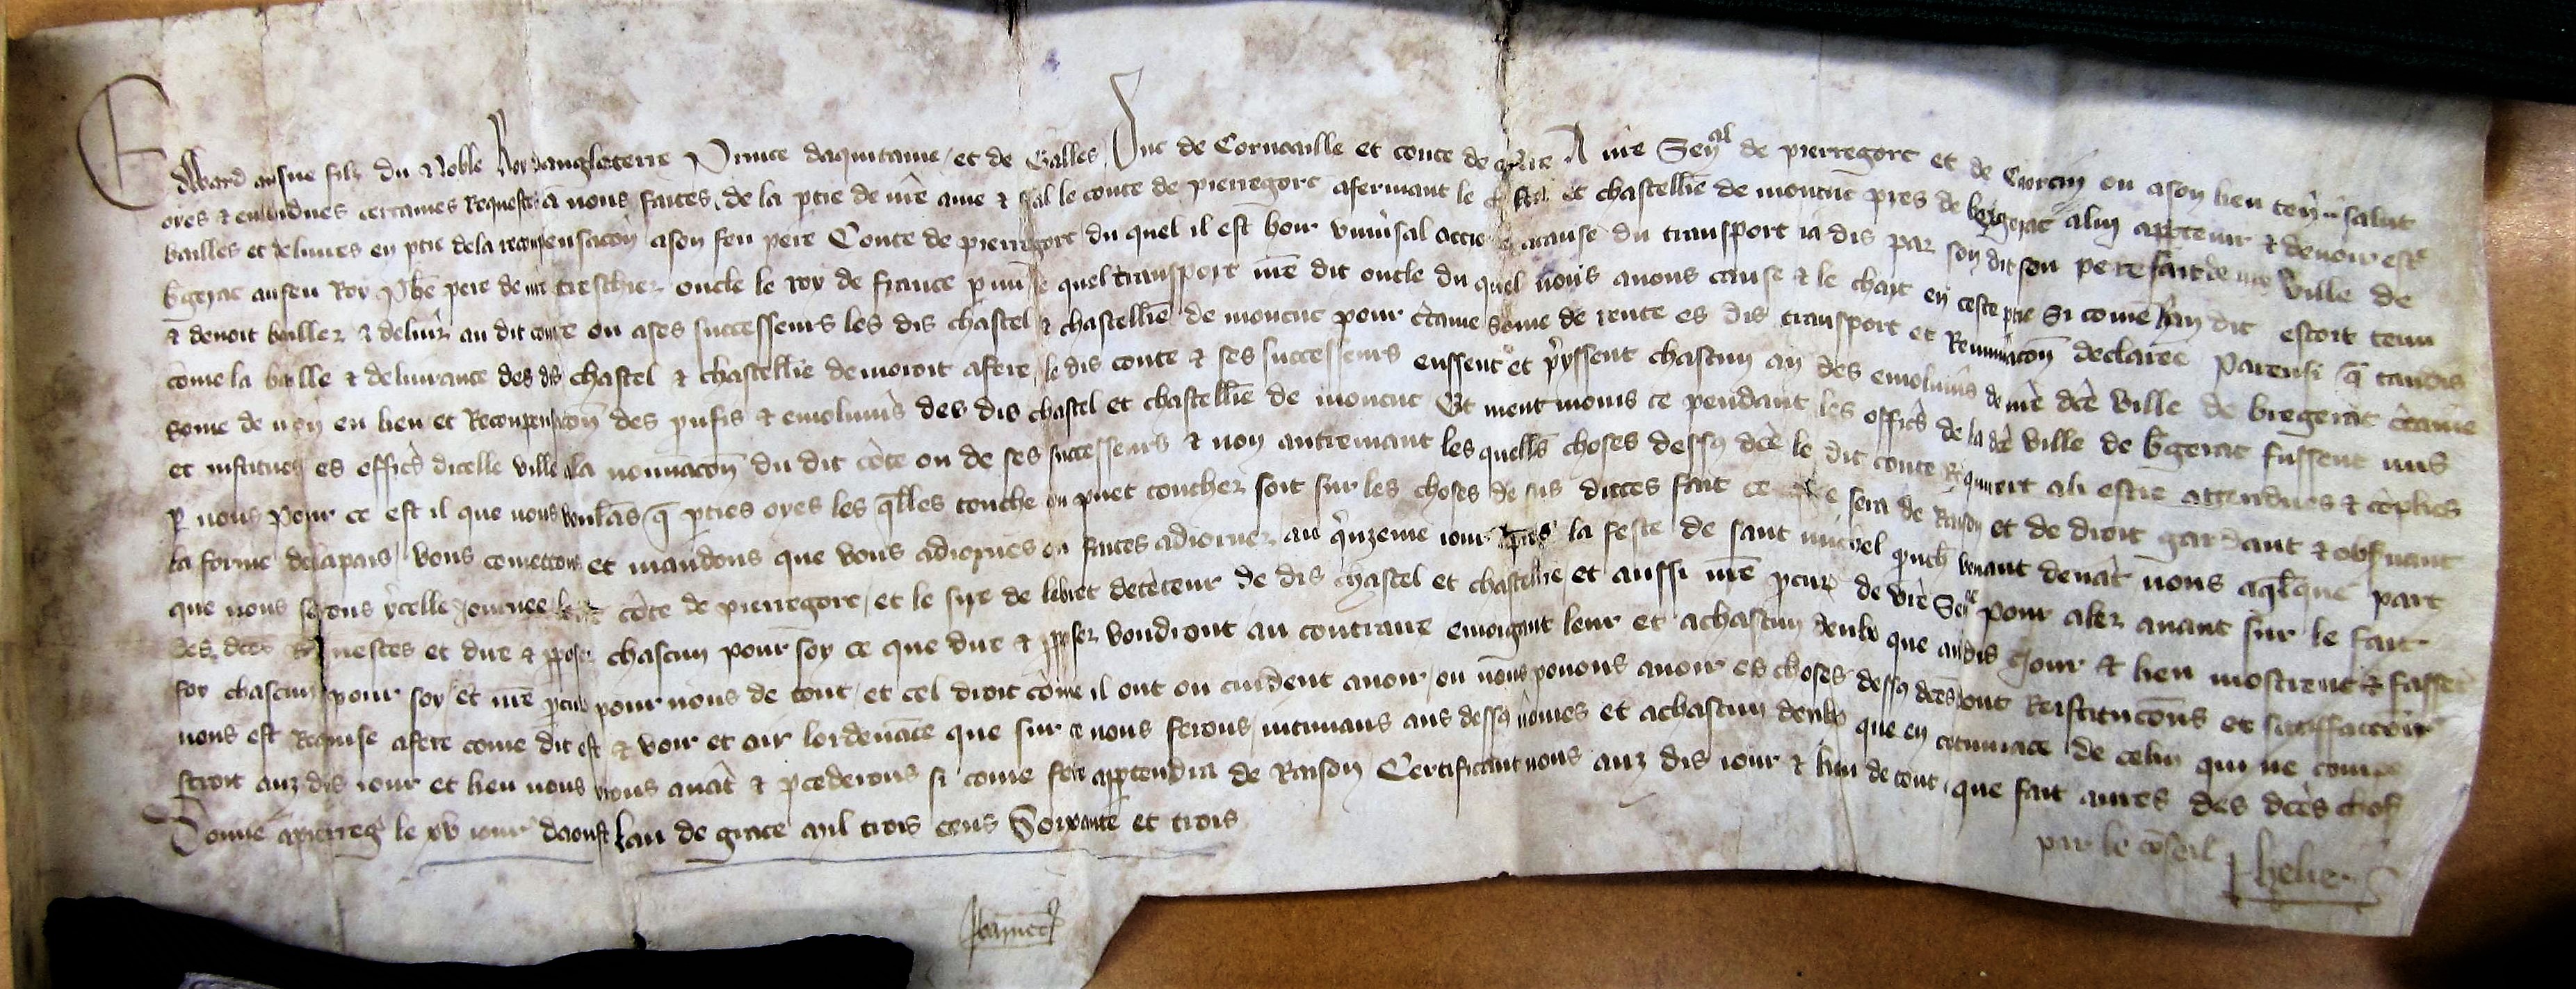 Edward ausne filz du Noble Roy dangleterre Prince daquitaine et de Galles Duc de Cornuaille et conte de A nre Seneschal de pierregorc et de Caorcin ou a son lieu ten salut
oyes & entendues certaines Requestes a nous faites de la ptie de nre ame & feal le conte de pierregorc afermant le chastel et chastellie de moncuc pres de bergerac a luy apptenir & devoir estre
bailles et delivres en ptie de la recompensacon a son feu pere Conte de pierregorc du quel il est hoir univsal a cause du transport ia dis par son dit feu pere fait de ville de
bgerac au feu Roy Phe pere de nre treschier oncle le roy de france p le quel transport nre dit oncle du quel nous avons cause & le chart en ceste ptie Si come lan dit estoit tenu
& devoit bailler & delivr au dit conte ou a ses successeurs les dis chastel & chastellie de moncuc pour ctaine some de rente es dis transport et declaree Parensi q tandis
come la baille & delivrance des dis chastel & chastellie demoroit afere le dis conte & ses successeurs eussent et pyssent chascun an des emolumns de nre dce ville de bregerac ctaine
some de en lieu et Recompensacon des pufis & emolumns des dis chastel et chastellie de moncuc Et ment moins ce pendant les offics de la dce ville de bgerac fussent mis
et institues es offics dicelle ville a la nominacon du dit cote ou de ses successeurs & non autremant les quells choses dessus dces le dit conte Requiert a li estre attendues & coplies
p nous Pour ce est il que nous voulas q pties oyes les qlles touche ou puet toucher soit sur les choses de sus dittes fait ce que sera de Raison et de droit gardant & obsvant
la forme de la pais vous comettons et mandons que vous adiornes ou faites adiorner au qnzeme iour apres la feste de sant michel pruch venant devat nous a qlque part
que nous serons ycelle Journee le dit cote de pierregorc et le syre de lebret deteteur de dis chastel et chastellie et aussi nre pcur de vre Sen pour aler avant sur le fait
des dces Requestes et dire & pposer chascun pour soy ce que dire & pposer voudront au contraire enioignant leur et a chascun deulx que aus dis Jour & lieu mostrent & fassent
foy chascun pour soy et nre pcur pour nous de tout et cel droit come il ont ou cuident avoir ou nous povons avoir es choses dessus dces dont Restitucons et satiffaccon
nous est Requise afere come dit est & voir et oir lordenace que sur ce nous ferons intimans aus dessus nomes et a chascun deulx que en cotumace de celuy qui ne
stroit aux dis iour et lieu nous irons avat & pcederons si come fere apptendra de Raison Certificant nous aux dis iour & lieu de tout que fait aures des dces chos
Donne a pierreg le xv iour daoust lan de grace mil trois cens Soixante et trois
par le coseil
P helier